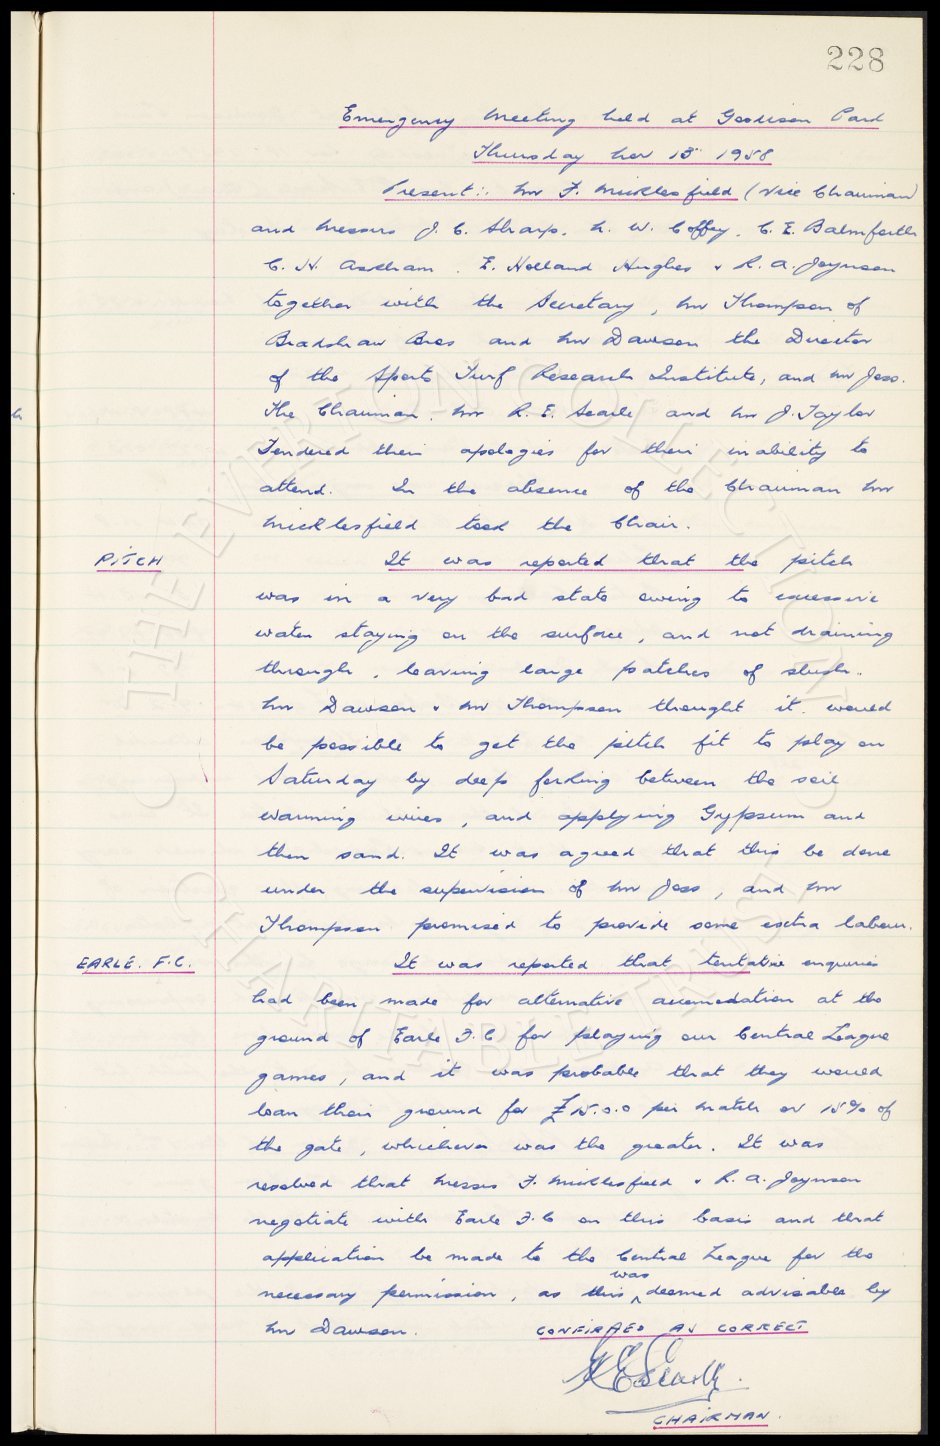 228
Emergency Meeting held at Goodison Park
Thursday Nov 13 1958
Present:: Mr F. Micklesfield (Vice Chairman)
and Messrs J. C. Sharp. N. W. Coffey. C. E. Balmforth
C. H. Askham. E. Holland Hughes & R. A. Joynson
together with the Secretary, Mr Thompson of
Bradshaw Bros and Mr Dawson the Director
of the Sports Turf Research Institute, and Mr Jess.
The Chairman. Mr R. E. Searle and Mr J. Taylor
Tendered their apologies for their inability to
attend. In the absence of the Chairman Mr
Micklesfield took the Chair.
PITCH It was reported that the pitch
was in a very bad state owing to excessive
water staying on the surface, and not draining
through, leaving large patches of slush.
Mr Dawson & Mr Thompson thought it would
be possible to get the pitch fit to play on
Saturday by deep forking between the soil
warming wires, and applying Gypsum and
then sand. It was agreed that this be done
under the supervision of Mr Jess, and Mr
Thompson promised to provide some extra labour.
EARLE. F.C. It was reported that tentative enquiries
had been made for alternative accomodation at the
ground of Earle F.C for playing our Central League
games, and it was probable that they would
loan their ground for £15.0.0 per match or 15% of
the gate, whichever was the greater. It was
resolved that Messrs F. Micklesfield & R. A. Joynson
negotiate with Earle F.C on this basis and that
application be made to the Central League for the
necessary permission, as this was deemed advisable by
Mr Dawson. CONFIRMED AS CORRECT
R E Searle
CHAIRMAN.
THE EVERTON COLLECTION
CHARITABLE TRUST